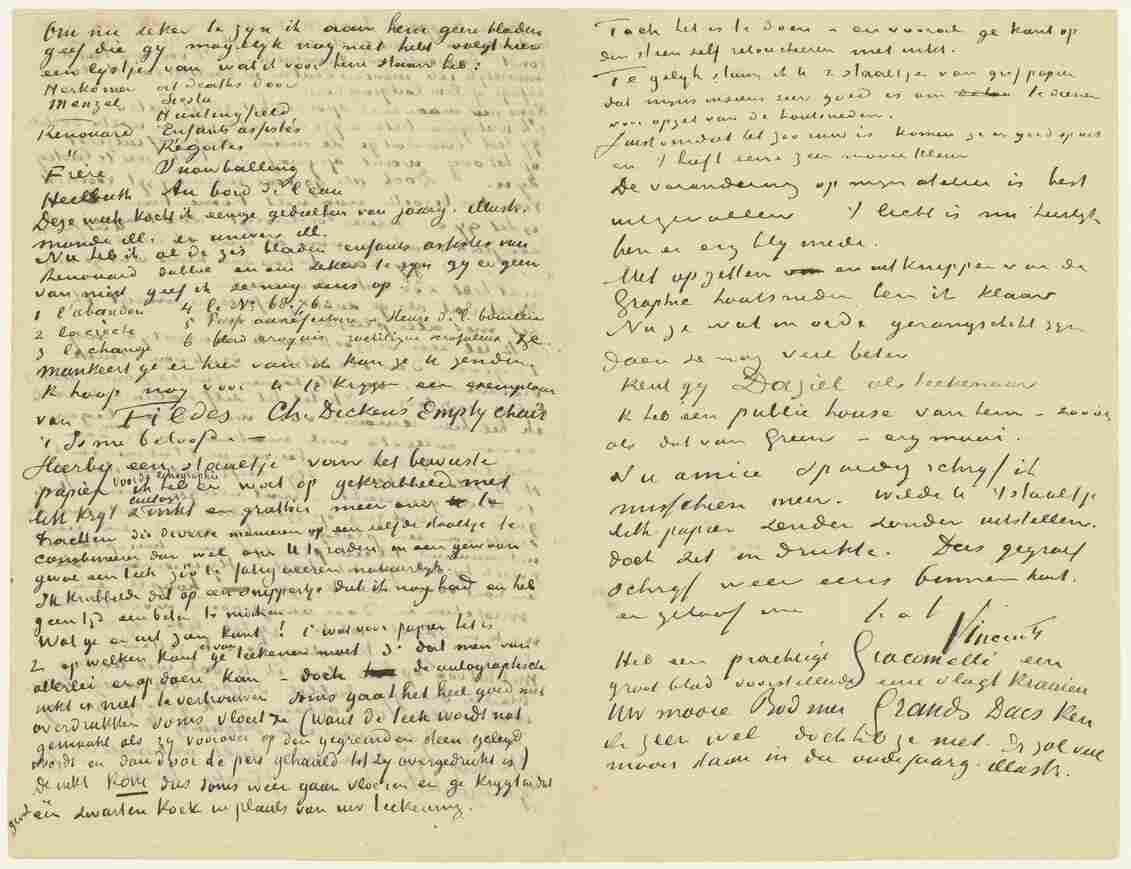 Om nu zeker te zyn ik aan hem geen bladen
geef die gy mogelyk nog niet hebt volgt hier
een lijstje van wat ik voor hem klaar heb:
Herkomer at deaths door
Menzel Siesta
Huntingfield
Renouard Enfants assistés
" Régates
Frère Snowballing
Heilbuth Au bord de l'eau
Deze week kocht ik eenige gedeelten van jaarg. illustr.
monde ill. en univers ill.
Nu heb ik al de zes bladen enfants assistés van
Renouard dubbel en om zeker te zyn gy er geen
van mist geef ik ze nog eens op
1 l'abandon 4
2 la crèche 5
3 le change 6 blad croquis
mankeert ge er hier van dan kan ze u zenden
Ik hoop nog voor U te krygen een exemplaar
van Fildes Ch. Dickens' Empty chair
't Is me beloofd. —
Hierby een staaltje van het bewuste
papier voor de autographie ik heb er wat op gekrabbeld met
litt kryt inkt en grattoir meer om te
trachten die diverse manieren op een zelfde staaltje te
combineeren dan wel om U te raden om een gewoon
geval een teek zóó te
Ik krabbelde dat op een snippertje dat ik nog had en heb
geen tyd een beter te maken
Wat ge er uit zien kunt! 1° wat voor papier het is
2 op welken kant er van ge teekenen moet 3° dat men van
allerlei er op doen kan – doch de autographische
inkt is niet te vertrouwen soms gaat het heel goed met
overdrukken soms vloeit ze (want de teek wordt nat
gemaakt als zy voorover op den gegreinden steen gelegd
wordt en dan door de pers gehaald tot zy overgedrukt is)
de inkt kan dus soms weer gaan vloeien en ge krygt in dat
geval één zwarten koek in plaats van uw teekening.
Toch het is te doen – en vooral ge kunt op
den steen zelf retoucheren met inkt.
Te gelyk stuur ik U 2 staaltjes van grys papier
dat myns inziens zeer goed is om te dienen
voor opzet van de houtsneden.
Juist omdat het zoo ruw is komen ze er goed op uit
en 't heeft eene zeer mooie kleur
De verandering op myn atelier is best
uitgevallen 't licht is nu heerlyk
ben er erg bly mede.
Met opzetten en uitknippen van de
Graphic houtsneden ben ik klaar
Nu ze wat in orde gerangschikt zyn
doen ze nog veel beter
Kent gy Dalziel als teekenaar
Ik heb een public house van hem – zooiets
als dat van Green – erg mooi.
Nu amice spoedig schryf ik
misschien meer. wilde U 't staaltje
lith papier zenden zonder uitstellen.
doch zit in drukte. Dus gegroet
schryf weer eens binnen kort.
en geloof me t. à t.
Vincent
Heb een prachtige Giacomelli een
groot blad voorstellende eene vlugt kraaien
Uw mooie Bodmer Grands Ducs ken
ik zeer wel doch heb ze niet. Is zal veel
moois staan in die oude jaarg. illustr.